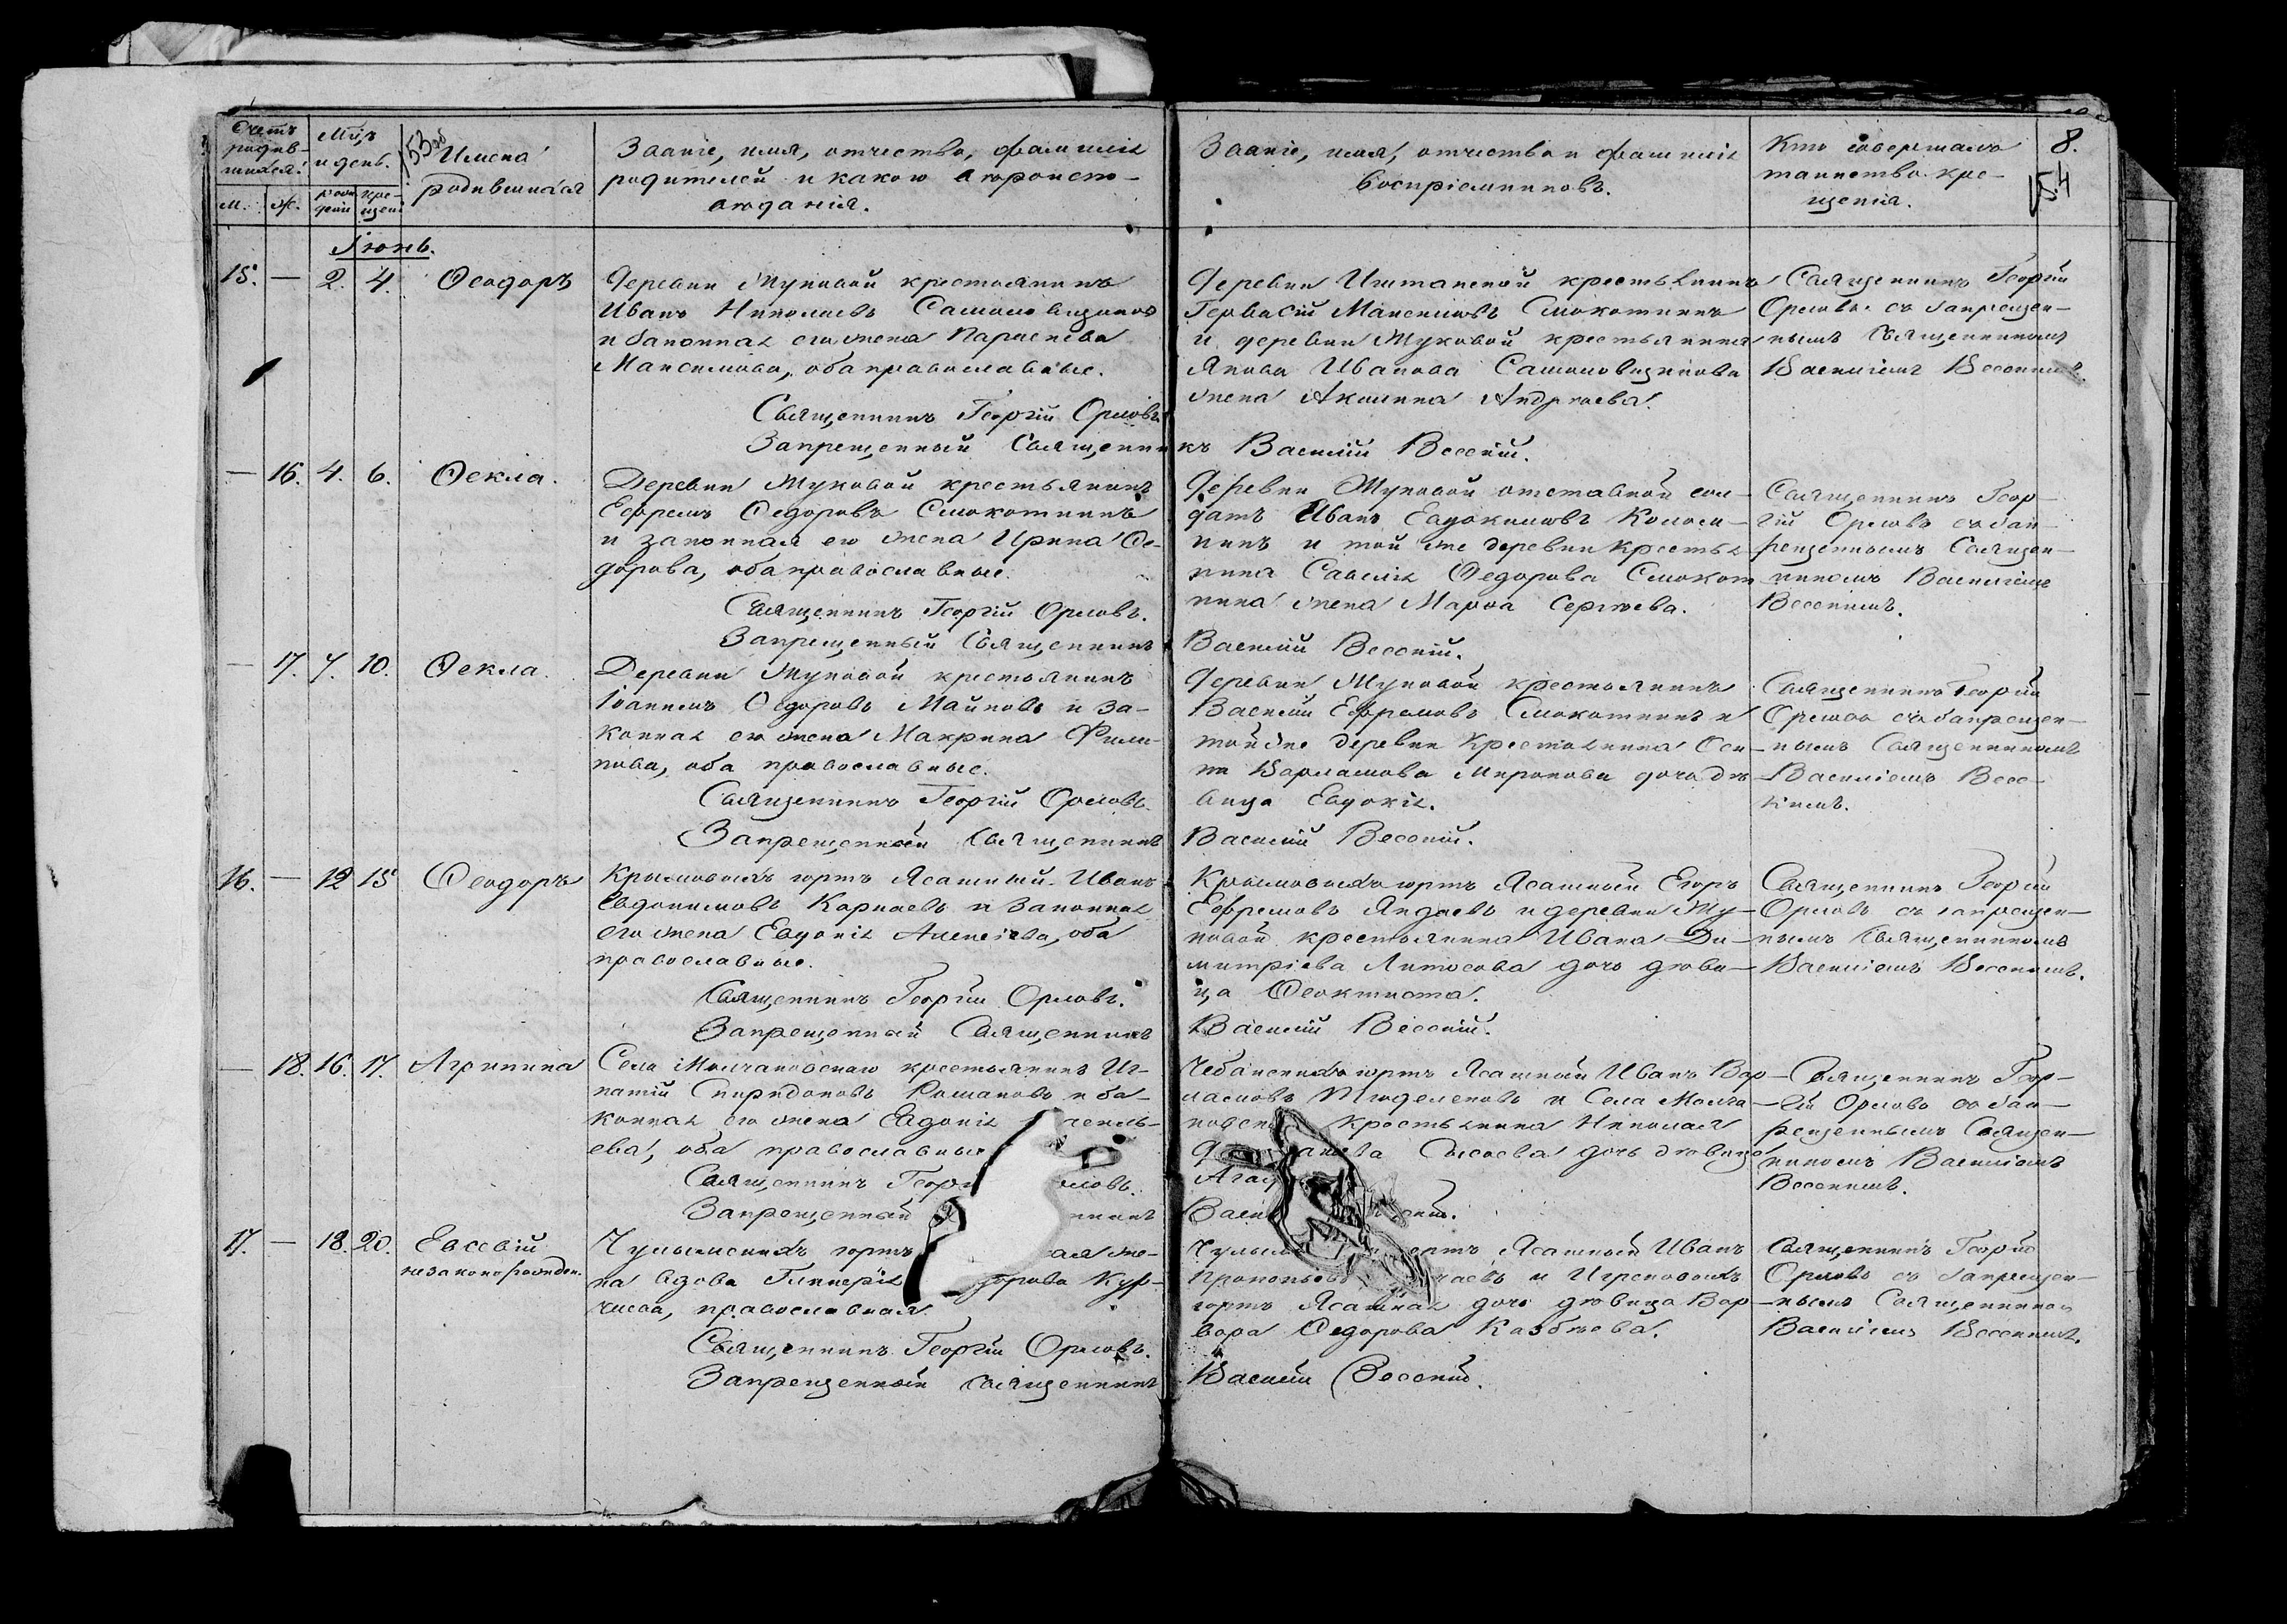 Счетъ родив-
шихся.
М. Ж.
Мѣс. и день.
рож-
денія
кре-
щен.
153 об
Имена
родившихся
Званіе, имя, отчество, фамилія
родителей и какого вѣроиспо-
вѣданія.
Званіе, имя, отчество и фамилія
воспріемниковъ.
Кто совершалъ
таинство кре-
щенія.
8.
154
Іюнь.
15. — 2. 4. Ѳеодоръ
Деревни Жуковой крестьянинъ
Иванъ Николаевъ
и законная его жена Параскева
Максимова, оба православные.
Священникъ Георгій Орловъ.
Запрещенный Священникъ Василій Весскій.
Деревни Иштанской крестьянинъ
Гервасій Максимовъ Смокотинъ
и деревни Жуковой крестьянина
Якова Иванова
жена Акилина Андреева.
Священникъ Георгій
Орловъ съ запрещен-
нымъ Священникомъ
Василіемъ Весскимъ.
— 16. 4. 6. Ѳекла.
Деревни Жуковой крестьянинъ
Ефремъ Ѳедоровъ Смокотинъ
и законная его жена Ирина Ѳе-
дорова, оба православные.
Священникъ Георгій Орловъ.
Запрещенный Священникъ Василій Весскій.
Деревни Жуковой отставной сол-
датъ Иванъ Евдокимовъ
и той же деревни крестья-
нина Савелія Ѳедорова Смокот
нина жена Марѳа Сергѣева.
Священникъ Геор-
гій Орловъ съ зап-
рещеннымъ Священ-
никомъ Василіемъ
Весскимъ.
— 17. 7. 10. Ѳекла.
Деревни Жуковой крестьянинъ
Іоанникъ Ѳедоровъ Майковъ и за-
конная его жена Макрина Фили-
пова, оба православные.
Священникъ Георгій Орловъ.
Запрещенный Священникъ Василій Весскій.
Деревни Жуковой крестьянинъ
Василій Ефремовъ Смокотинъ и
той же деревни крестьянина Оси-
па Варламова Миронова дочь дѣ-
вица Евдокія.
Священникъ Георгій
Орловъ съ запрещен-
нымъ Священникомъ
Василіемъ Весс-
кимъ.
16. — 12 15 Ѳеодоръ
юртъ Ясашный Иванъ
Евдокимовъ Карнаевъ и законная
его жена Евдокія Алексѣева, оба
православные.
Священникъ Георгій Орловъ.
Запрещенный Священникъ Василій Весскій.
юртъ Ясашный Егоръ
Ефремовъ и деревни Жу-
ковой крестьянина Ивана Ди-
митріева дочь дѣви-
ца Ѳеоктиста.
Священникъ Георгій
Орловъ съ запрещен-
нымъ Священникомъ
Василіемъ Весскимъ.
— 18. 16. 17. Агрипина
Села Молчановскаго крестьянинъ Иг-
натій Спиридоновъ Романовъ и за-
конная его жена Евдокія
ева, оба православные
Священникъ
Запрещенный
юртъ Ясашный Иванъ Вар-
ламовъ и Села Молча-
крестьянина Николая
Сысоева дочь дѣвица
Священникъ Геор-
гій Орловъ съ зап-
рещеннымъ Священ-
никомъ Василіемъ
Весскимъ.
17. — 18. 20. Евсевій
незаконорожден.
Чулымскихъ юртъ
на вдова Гликерія
православная.
Священникъ Георгій Орловъ.
Запрещенный Священникъ Василій Весскій.
юртъ Ясашный Иванъ
Прокопьевъ и Игрековыхъ
юртъ Ясашная дочь дѣвица Вар-
вара Ѳедорова Казбѣева.
Священникъ Георгій
Орловъ съ запрещен-
нымъ Священникомъ
Василіемъ Весскимъ.